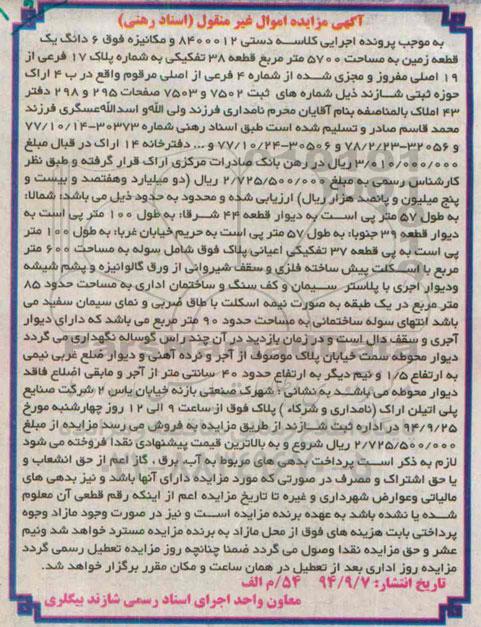 آگهی مزایده اموال غیر منقول (اسناد رهنی)
به موجب پرونده اجرایی کلاسه دستی ۸۴۰۰۰۱۲ و مکانیزه فوق ۶ دانگ یک
قطعه زمین به مساحت ۵۷۰۰ متر مربع قطعه ۳۸ تفکیکی به شماره پلاک ۱۷ فرعی از
۱۹ اصلی مفروز و مجزی شده از شماره ۴ فرعی از اصلی مرقوم واقع در ب ۴ اراک
حوزه ثبتی شازند ذیل شماره های ثبت ۷۵۰۲ و ۷۵۰۳ صفحات ۲۹۵ و ۲۹۸ دفتر
۴۳ املاک بالمناصفه بنام آقایان محرم نامداری فرزند ولی الله و اسدالله عسگری فرزند
محمد قاسم صادر و تسلیم شده است طبق اسناد رهنی شماره ۳۰۳۷۳-۷۷/۱۰/۱۴
و ۳۲۰۵۶-۷۸/۲/۲۳ و ۳۰۵۰۶-۷۷/۱۰/۲۴ و ... دفترخانه ۱۴ اراک در قبال مبلغ
۳/۰۱۰/۰۰۰/۰۰۰ ریال در رهن بانک صادرات مرکزی اراک قرار گرفته و طبق نظر
کارشناس رسمی به مبلغ ۲/۷۲۵/۵۰۰/۰۰۰ ریال (دو میلیارد وهفتصد و بیست و
پنج میلیون و پانصد هزار ریال) ارزیابی شده و محدود به حدود ذیل می باشد: شمالا:
به طول ۵۷ متر پی است به دیوار قطعه ۴۴ شرقا: به طول ۱۰۰ متر پی است به
دیوار قطعه ۳۹ جنوبا: به طول ۵۷ متر پی است به حریم خیابان غربا: به طول ۱۰۰ متر
پی است به پی قطعه ۳۷ تفکیکی اعیانی پلاک فوق شامل سوله به مساحت ۶۰۰ متر
مربع با اسکلت پیش ساخته فلزی و سقف شیروانی از ورق گالوانیزه و پشم شیشه
ودیوار اجری با پلاستر سیمان و کف سنگ و ساختمان اداری به مساحت حدود ۸۵
متر مربع در یک طبقه به صورت نیمه اسکلت با طاق ضربی و نمای سیمان سفید می
باشد انتهای سوله ساختمانی به مساحت حدود ۹۰ متر مربع می باشد که دارای دیوار
آجری و سقف دال است و در زمان بازدید در آن چند راس گوساله نگهداری می گردد
دیوار محوطه سمت خیابان پلاک موصوف از آجر و نرده آهنی و دیوار ضلع غربی نیمی
به ارتفاع ۱/۵ و نیم دیگر به ارتفاع حدود ۴۰ سانتی متر از آجر و مابقی اضلاع فاقد
دیوار محوطه می باشد به نشانی: شهرک صنعتی بازنه خیابان یاس ۲ شرکت صنایع
پلی اتیلن اراک (نامداری و شرکاء) پلاک فوق از ساعت ۹ الی ۱۲ روز چهارشنبه مورخ
۹۴/۹/۲۵ در اداره ثبت شازند از طریق مزایده به فروش می رسد مزایده از مبلغ
۲/۷۲۵/۵۰۰/۰۰۰ ریال شروع و به بالاترین قیمت پیشنهادی نقدا فروخته می شود
لازم به ذکر است پرداخت بدهی های مربوط به آب، برق، گاز اعم از حق انشعاب و
یا حق اشتراک و مصرف در صورتی که مورد مزایده دارای آنها باشد و نیز بدهی های
مالیاتی وعوارض شهرداری و غیره تا تاریخ مزایده اعم از اینکه رقم قطعی آن معلوم
شده یا نشده باشد به عهده برنده مزایده است و نیز در صورت وجود مازاد وجوه
پرداختی بابت هزینه های فوق از محل مازاد به برنده مزایده مسترد خواهد شد ونیم
عشر و حق مزایده نقدا وصول می گردد ضمنا چنانچه روز مزایده تعطیل رسمی گردد
مزایده روز اداری بعد از تعطیل در همان ساعت و مکان مقرر برگزار خواهد شد.
تاریخ انتشار: ۹۴/۹/۷ ۵۴/م الف
معاون واحد اجرای اسناد رسمی شازند بیگلری